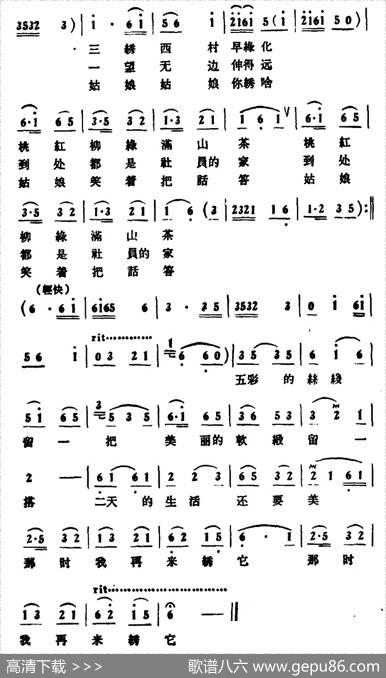 3532 3) | i · 6 i | 56 i | 2i6i 5(i | 2i6i 50) |
三 綉 西 村 早綠化
一 望 无 边 伸得远
姑 娘 姑 娘 你綉啥
6·i 65 | 3·5 32 | 1·3 21 | 1 6 1 | 6·i 65 |
桃 紅 柳 綠 滿 山 茶 桃 紅
到 处 都 是 社 員的 家 到 处
姑 娘 笑 着 把 話 答 姑 娘
3·5 32 | 1·3 21 | 1 6 (3 | 2321 16 | 1·2 35) :||
柳 綠 滿 山 茶
都 是 社 員的 家
笑 着 把 話 答
(輕快)
(6·6i | 6i65 6 | 3·35 | 3532 3 | 0 i 6i |
rit
56 i | 03 21 | 6 60) | 35 35 | 6 i 6 |
五彩 的 絲 綫
5i 65 | 5 35 | 6·i 65 | 36 53 | 3 2 1 |
留 一 把 美 丽的 軟 緞 留 一
2 — | 61 61 | 2 23 | 65 32 | 2 1 61 |
搭 二天 的 生活 还 要 美
2·5 32 | 13 21 | 62 15 | 6 · 1 | 2·5 32 |
那 时 我 再 来 綉 它 那 时
rit
13 21 | 62 15 | 6 — ||
我 再 来 綉 它
高清下载 >>> 歌谱八六 www.gepu86.com